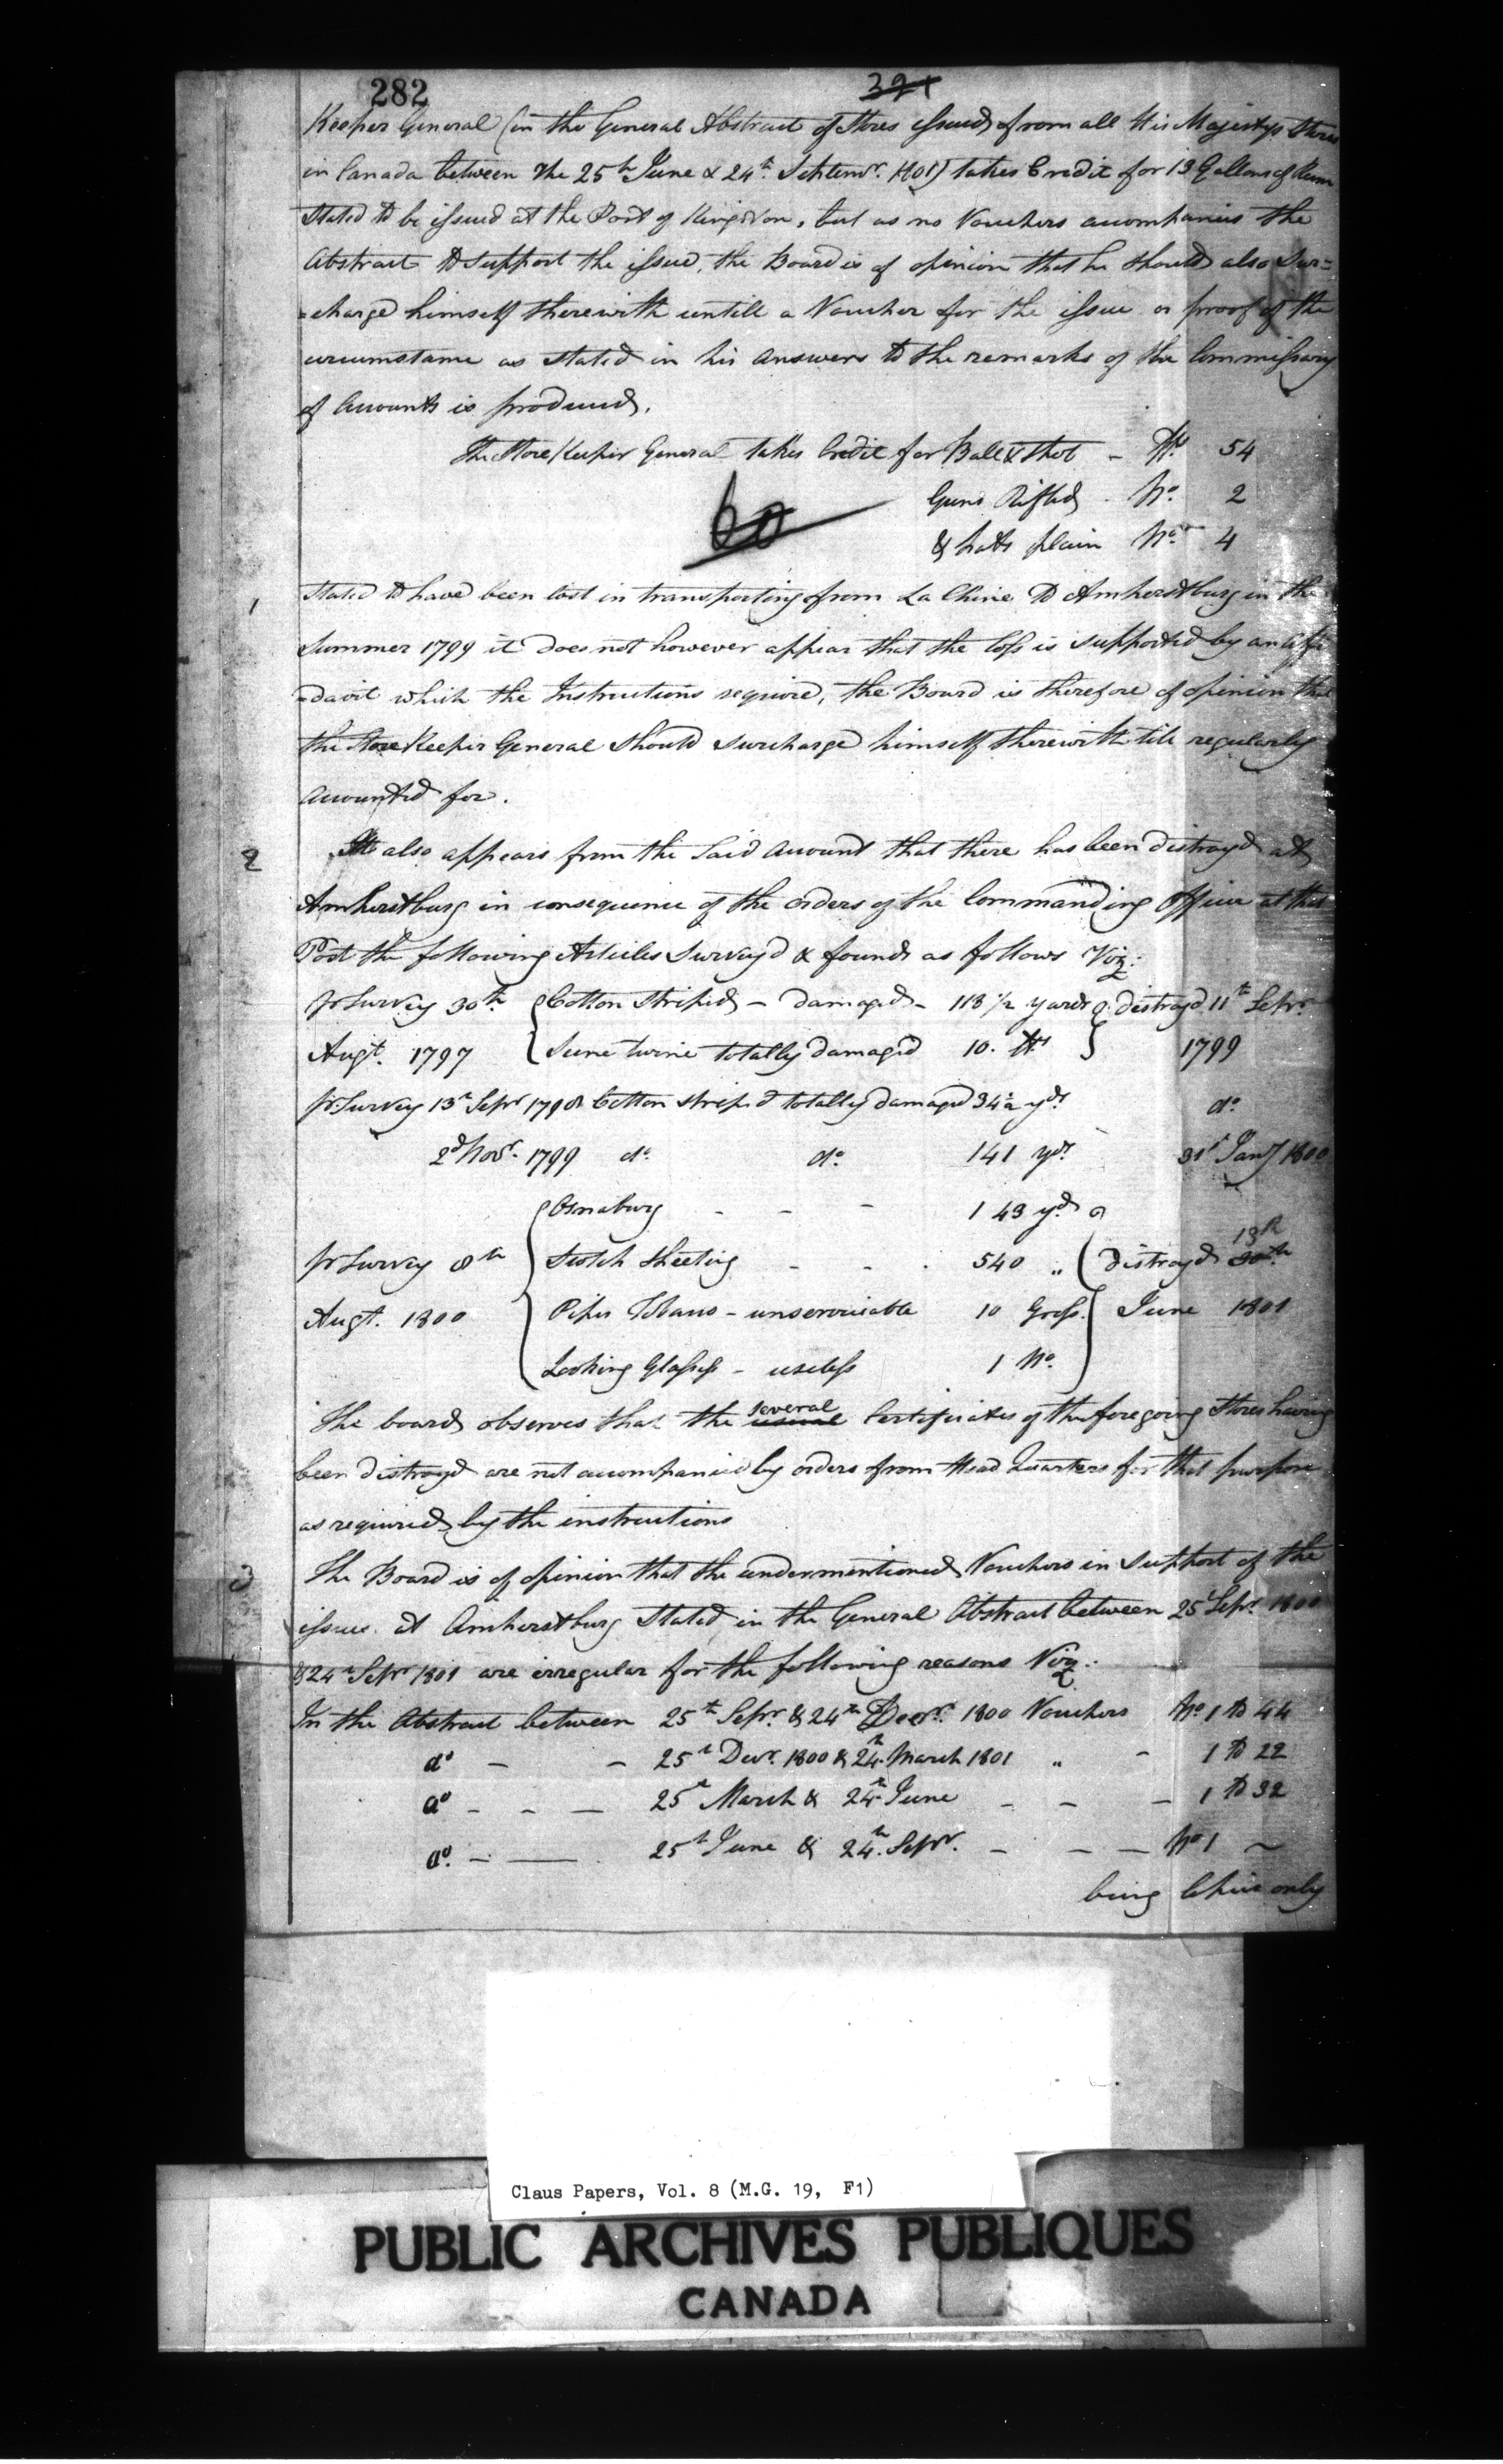 282
391
Keeper General (in the General Abstract of Stores issued from all His Majestys Stores
in Canada between the 25th June & 24th Septemr. 1801) takes Credit for 13 Gallons of Rum
stated to be issued at the Post of Kingston, but as no Vouchers accompanies the
Abstract to support the issue, the Board is of opinion that he should also Sur=
=charge himself therewith untill a Voucher for the issue or proof of the
circumstance as stated in his answers to the remarks of the Commissary
of Accounts is produced.
The Store Keeper General takes Credit for Ball & Shot - lbs 54
Guns Rifled - No. 2
60
& hats plain No. 4
1 stated to have been lost in transporting from La Chine to Amherstburg in the
Summer 1799 it does not however appear that the loss is supported by an affi
=davit which the Instructions require, the Board is therefore of opinion that
the Store Keeper General should surcharge himself therewith till regularly
accounted for.
2 It also appears from the Said Account that there has been distroyd at
Amherstburg in consequence of the orders of the Commanding Officer at that
Post the following Articles Surveyd & found as follows Viz:
Pr Survey 30th { Cotton Striped - damaged - 118 1/2 yards } distroyd 11th Sepr.
Augt. 1797 { Seine twine totally damaged 10. lbs } 1799
Pr. Survey 13th Sepr 1798 Cotton striped totally damaged 34 1/2 yds do.
2d Novr. 1799 do. do. 141 yds. 31st Jany 1800
{ Osnaburg - - - 143 yds
13th
Pr Survey 8th { Scotch Sheeting - - . 540 „ ( distroyd 30th
Augt. 1800 { Pipes Tobacco - unserviceable 10 Gross. } June 1801
{ Looking Glasses - useless 1 No.
several
The board observes that the usual Certificates of the foregoing Stores having
been distroyd are not accompanied by orders from Head Quarters for that purpose
as required by the instructions
3 The Board is of opinion that the undermentioned Vouchers in support of the
issues at Amherstburg Stated in the General Abstract between 25 Sepr. 1800
& 24th Sepr 1801 are irregular for the following reasons Viz:
In the Abstract between 25th Sepr. & 24th Decr. 1800 Vouchers No. 1 to 44
do - - 25th Decr. 1800 & 24th March 1801 „ - 1 to 22
do - - - 25th March & 24th June - - - 1 to 32
do. - — 25th June & 24th Sepr. - - - No 1 ~
being Copies only
Claus Papers, Vol. 8 (M.G. 19, F1)
PUBLIC ARCHIVES PUBLIQUES
CANADA